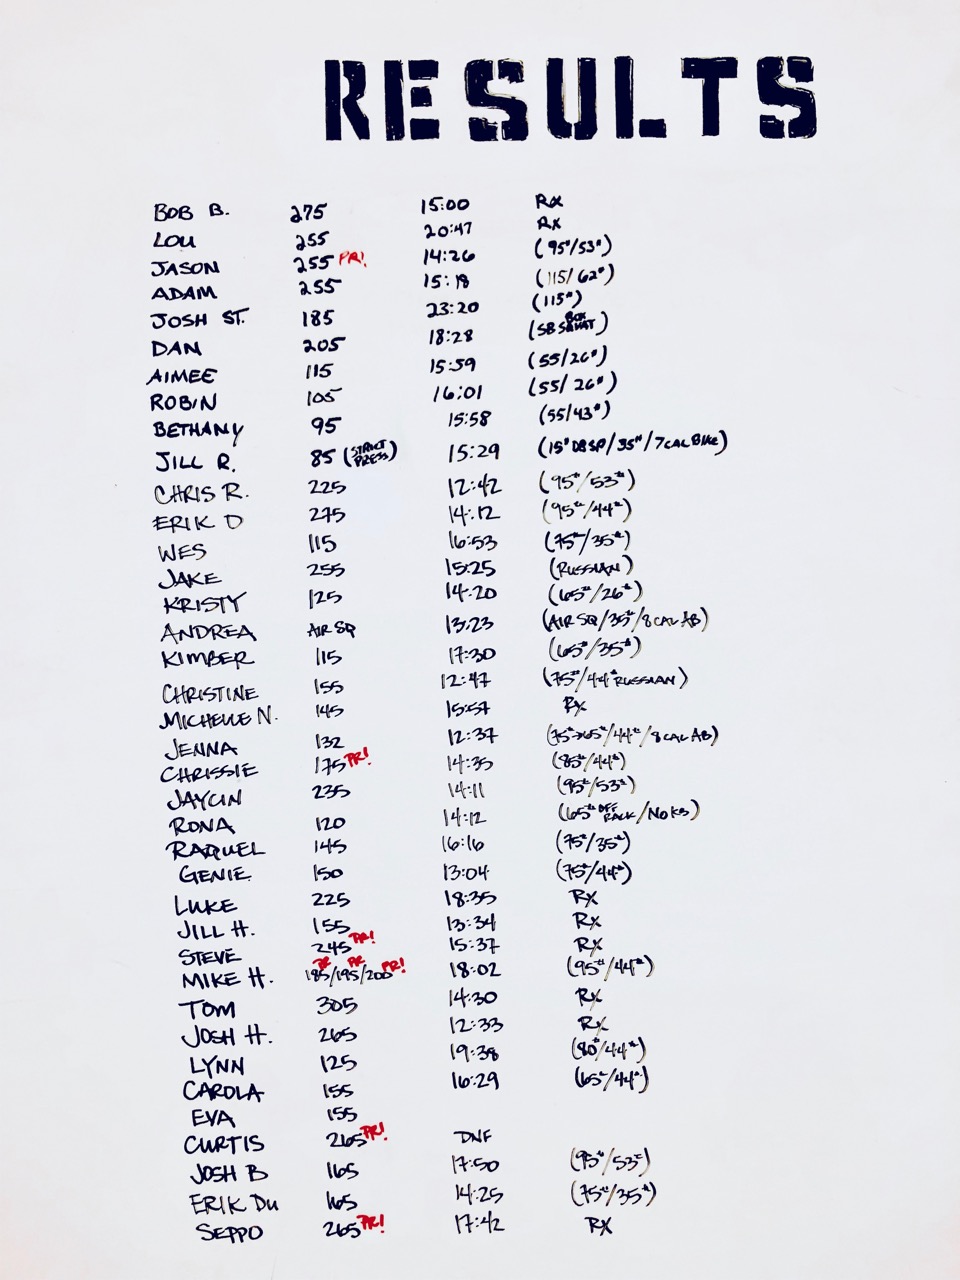 RESULTS
BOB B. 275 15:00 RX
LOU 255 20:47 RX
JASON 255 PR! 14:26 (95#/53#)
ADAM 255 15:18 (115/62#)
JOSH ST. 185 23:20 (115#)
DAN 205 18:28 (SB BOX SQUAT)
AIMEE 115 15:59 (55/26#)
ROBIN 105 16:01 (55/26#)
BETHANY 95 15:58 (55/43#)
JILL R. 85 (STRICT PRESS) 15:29 (15# DB SP/35#/7 CAL BIKE)
CHRIS R. 225 12:42 (95#/53#)
ERIK D 275 14:12 (95#/44#)
WES 115 16:53 (75#/35#)
JAKE 255 15:25 (RUSSIAN)
KRISTY 125 14:20 (65#/26#)
ANDREA AIR SQ 13:23 (AIR SQ/35#/8 CAL AB)
KIMBER 115 17:30 (65#/35#)
CHRISTINE 155 12:47 (75#/44# RUSSIAN)
MICHELLE N. 145 15:57 RX
JENNA 132 12:37 (75#→65#/44#/8 CAL AB)
CHRISSIE 175 PR! 14:35 (85#/44#)
JAYCIN 235 14:11 (95#/53#)
RONA 120 14:12 (65# OFF RACK/NO KB)
RAQUEL 145 16:16 (75#/35#)
GENIE 150 13:04 (75#/44#)
LUKE 225 18:35 RX
JILL H. 155 13:34 RX
STEVE 245 PR! 15:37 RX
MIKE H. 185 PR/195 PR/200 PR! 18:02 (95#/44#)
TOM 305 14:30 RX
JOSH H. 265 12:33 RX
LYNN 125 19:38 (80#/44#)
CAROLA 155 16:29 (65#/44#)
EVA 155
CURTIS 265 PR! DNF
JOSH B 165 17:50 (95#/53#)
ERIK DU 165 14:25 (75#/35#)
SEPPO 265 PR! 17:42 RX